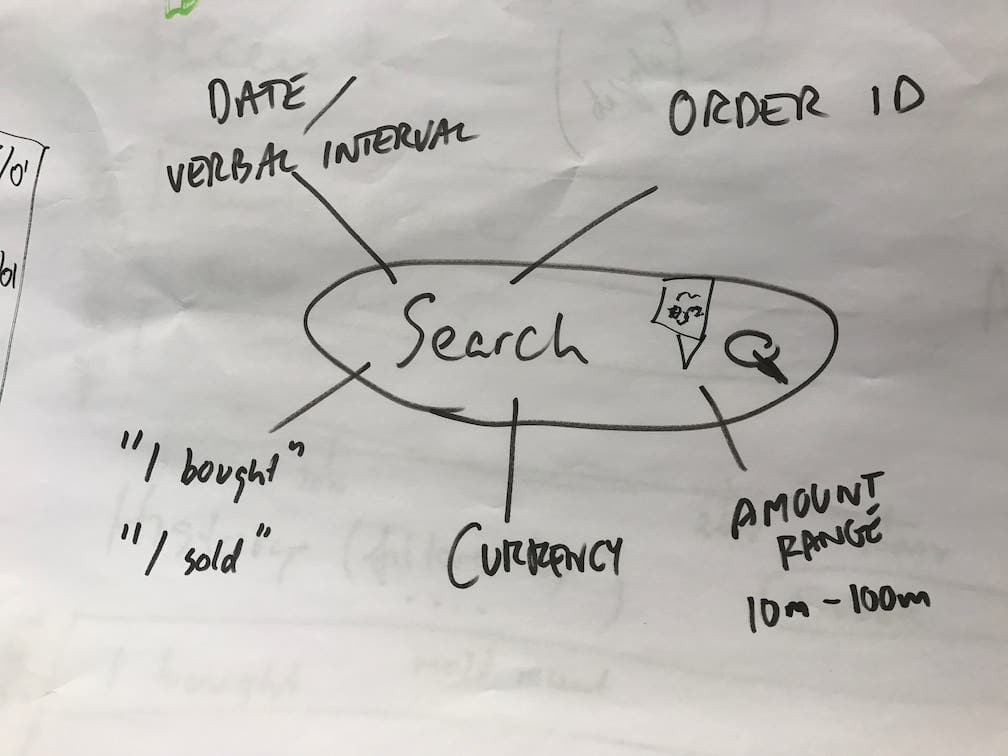 DATE /
VERBAL INTERVAL
ORDER ID
Search
"I bought"
"I sold"
CURRENCY
AMOUNT
RANGE
10m - 100m